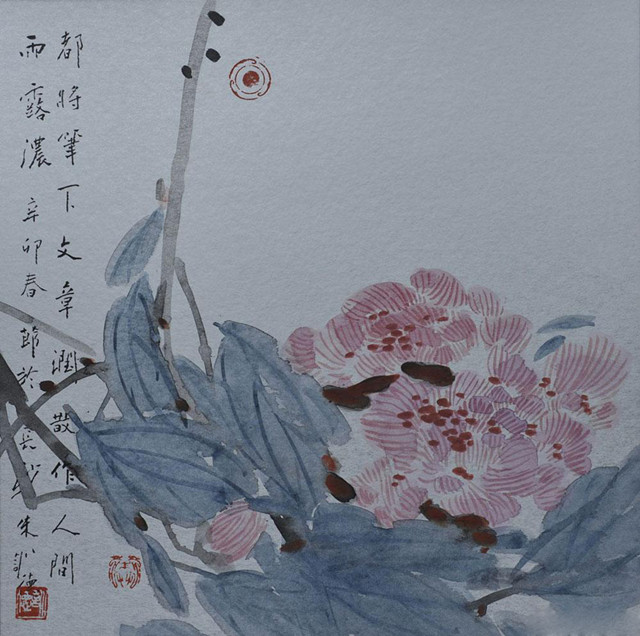 都将筆下文章潤散作人間
雨露濃辛卯春節於長沙朱